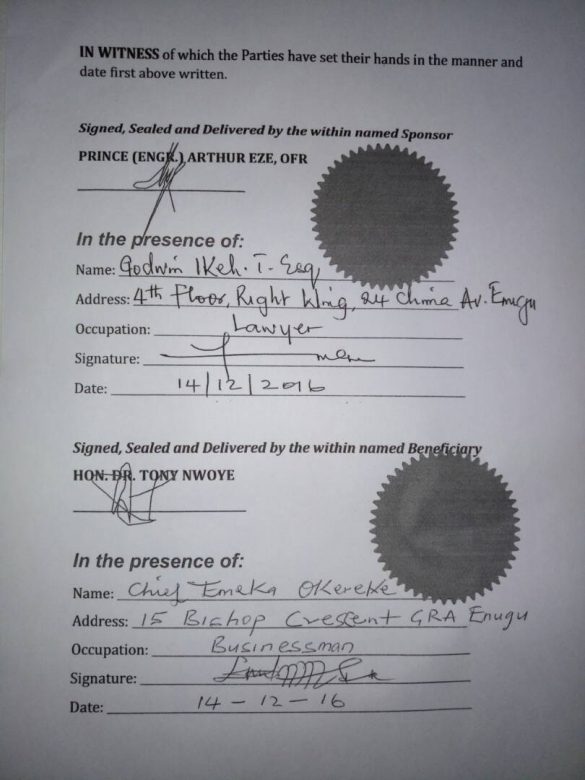 IN WITNESS of which the Parties have set their hands in the manner and
date first above written.
Signed, Sealed and Delivered by the within named Sponsor
PRINCE (ENGR.) ARTHUR EZE, OFR
In the presence of:
Name: Godwin Ikeh. T. Esq,
Address: 4th Floor, Right Wing, 24 Chime Av. Enugu
Occupation: Lawyer
Signature:
Date: 14/12/2016
Signed, Sealed and Delivered by the within named Beneficiary
HON. DR. TONY NWOYE
In the presence of:
Name: Chief Emeka Okereke
Address: 15 Bishop Crescent GRA Enugu
Occupation: Businessman
Signature:
Date: 14 - 12 - 16